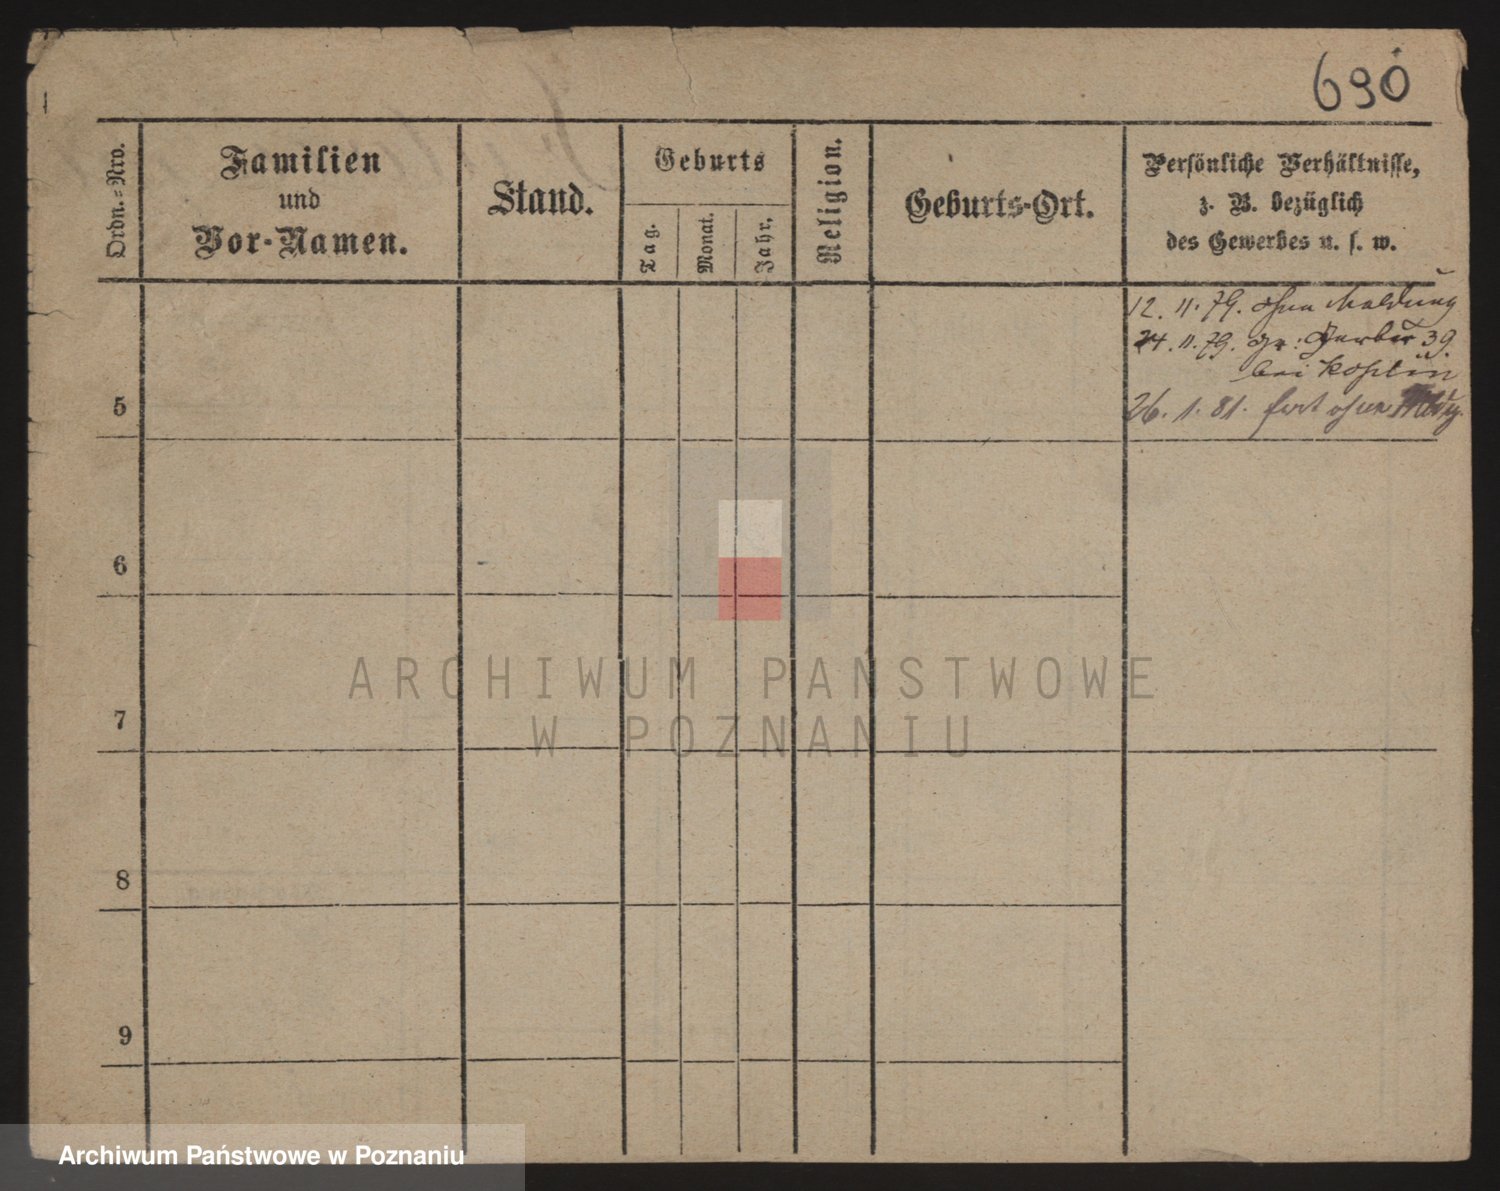 690
Ordn.-Nro.
Familien
und
Vor-Namen.
Stand.
Geburts
Tag.
Monat.
Jahr,
Religion.
Geburts-Ort.
Persönliche Verhältnisse,
z. B. bezüglich
des Gewerbes u. s. w.
12. 11. 79. ohne Meldung
24. 11. 79. Gr: Gerber 39.
bei
26. 1. 81. fort ohne Meldg.
5
6
7
8
9
ARCHIWUM PAŃSTWOWE
W POZNANIU
Archiwum Państwowe w Poznaniu